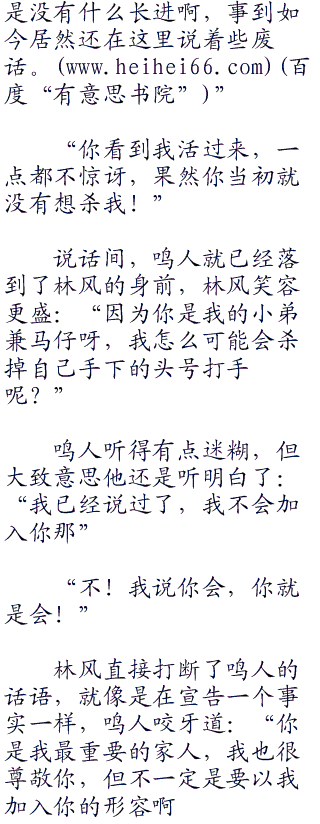 是没有什么长进啊，事到如
今居然还在这里说着些废
话。(www.heihei66.com)(百
度“有意思书院”)”
“你看到我活过来，一
点都不惊讶，果然你当初就
没有想杀我！”
说话间，鸣人就已经落
到了林风的身前，林风笑容
更盛：“因为你是我的小弟
兼马仔呀，我怎么可能会杀
掉自己手下的头号打手
呢？”
鸣人听得有点迷糊，但
大致意思他还是听明白了：
“我已经说过了，我不会加
入你那”
“不！我说你会，你就
是会！”
林风直接打断了鸣人的
话语，就像是在宣告一个事
实一样，鸣人咬牙道：“你
是我最重要的家人，我也很
尊敬你，但不一定是要以我
加入你的形容啊